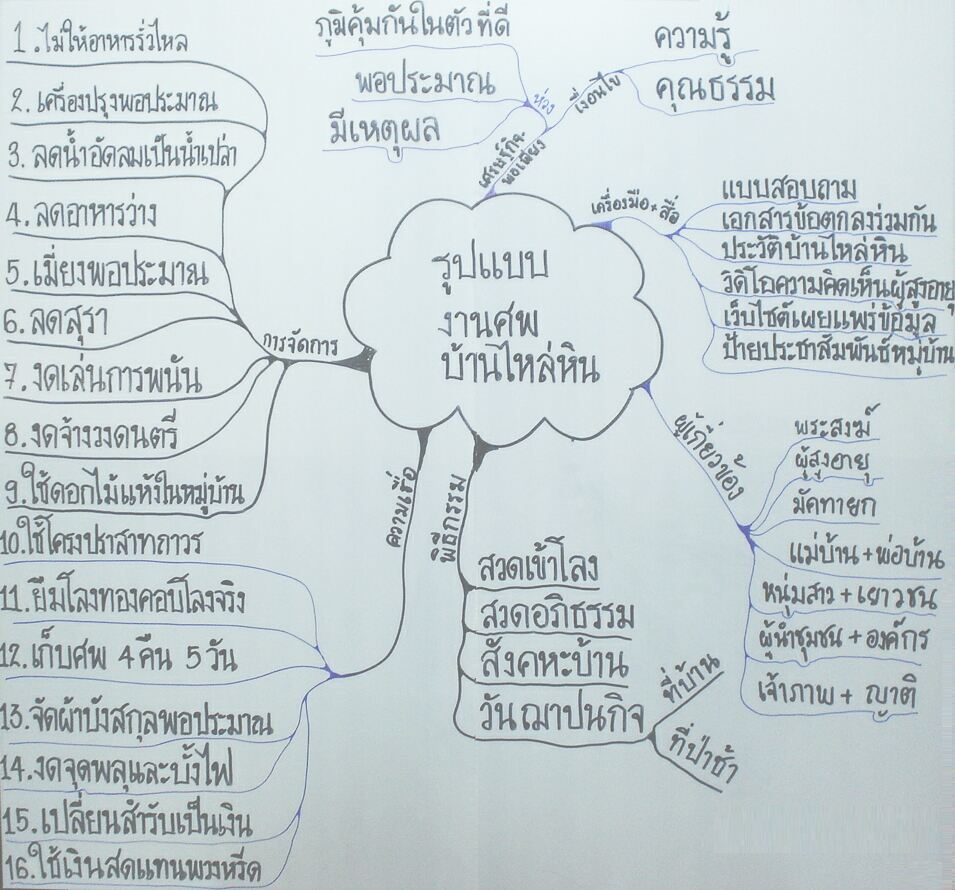 รูปแบบ
งานศพ
บ้านไหล่หิน
เศรษฐกิจ-
พอเพียง
ห่วง
ภูมิคุ้มกันในตัวที่ดี
พอประมาณ
มีเหตุผล
เงื่อนไข
ความรู้
คุณธรรม
เครื่องมือ+สื่อ
แบบสอบถาม
เอกสารข้อตกลงร่วมกัน
ประวัติบ้านไหล่หิน
วิดิโอความคิดเห็นผู้สูงอายุ
เว็บไซต์เผยแพร่ข้อมูล
ป้ายประชาสัมพันธ์หมู่บ้าน
ผู้เกี่ยวข้อง
พระสงฆ์
ผู้สูงอายุ
มัคทายก
แม่บ้าน+พ่อบ้าน
หนุ่มสาว+เยาวชน
ผู้นำชุมชน+องค์กร
เจ้าภาพ+ญาติ
พิธีกรรม
สวดเข้าโลง
สวดอภิธรรม
สังคหะบ้าน
วันฌาปนกิจ
ที่บ้าน
ที่ป่าช้า
การจัดการ
1.ไม่ให้อาหารรั่วไหล
2.เครื่องปรุงพอประมาณ
3.ลดน้ำอัดลมเป็นน้ำเปล่า
4.ลดอาหารว่าง
5.เมี่ยงพอประมาณ
6.ลดสุรา
7.งดเล่นการพนัน
8.งดจ้างวงดนตรี
9.ใช้ดอกไม้แห้งในหมู่บ้าน
ความเชื่อ
10.ใช้โครงปราสาทถาวร
11.ยืมโลงทองคอบโลงจริง
12.เก็บศพ 4 คืน 5 วัน
13.จัดผ้าบังสกุลพอประมาณ
14.งดจุดพลุและบั้งไฟ
15.เปลี่ยนสำรับเป็นเงิน
16.ใช้เงินสดแทนพวงหรีด